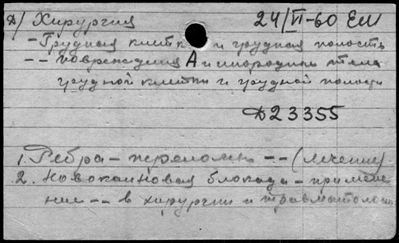 Д) Хирургия 24/VI-60 ЕМ
- Грудная клетка и грудная полость
-- повреждения А и инородные тела
грудной клетки и грудной полости
Д23355
1. Ребра - переломы -- (лечение)
2. Новокаиновая блокада - примене-
ние -- в хирургии и травматологии